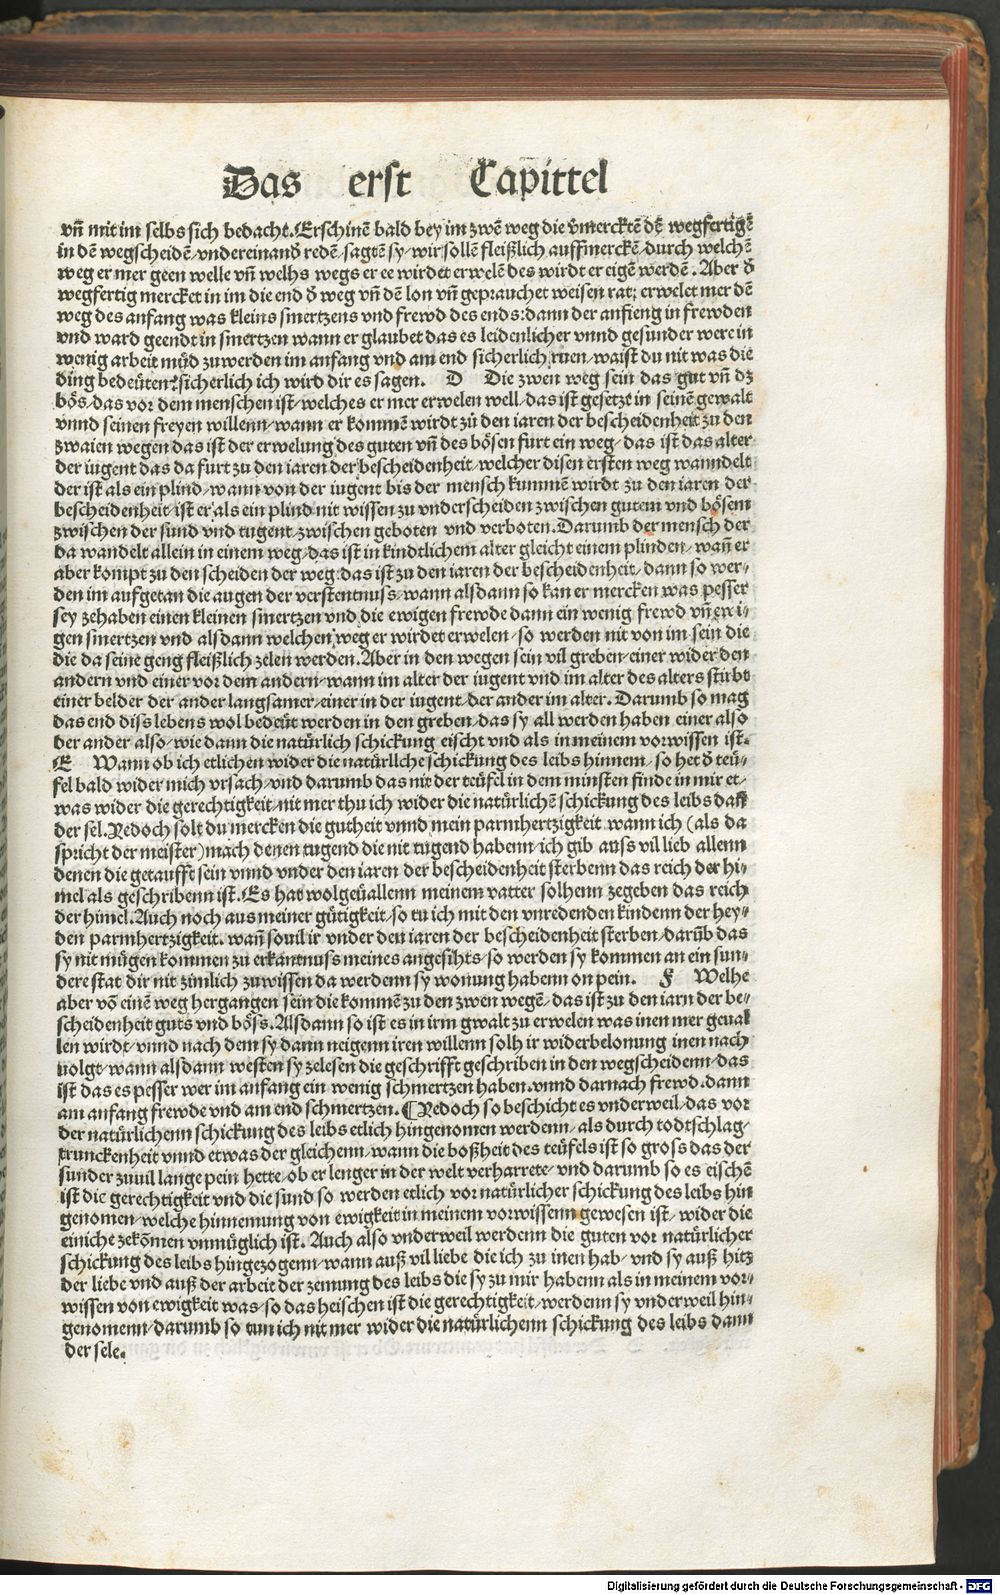 Das erst Capittel
vn̄ mit im selbs sich bedacht. Erschinē bald bey im zwē weg die v̄mercktē dē wegfertigē
in dē wegscheidē/vndereinand̕ redē/sagtē sy/wir sollē fleißlich auffmerckē/durch welchē
weg er mer geen welle vn̄ welhs wegs er ee wirdet erwelē des wirdt er eigē werdē. Aber d̕
wegfertig mercket in im die end d̕ weg vn̄ dē lon vn̄ geprauchet weisen rat: erwelet mer dē
weg des anfang was kleins smertzens vnd frewd des ends: dann der anfieng in frewden
vnd ward geendt in smertzen wann er glaubet das es leidenlicher vnnd gesunder were in
wenig arbeit mu̇d zuwerden im anfang vnd am end sicherlich ruen/waist du nit was die
ding bedeu̇ten? sicherlich ich wird dir es sagen. D Die zwen weg sein das gut vn̄ dz
bo̎s/das vor dem menschen ist/welches er mer erwelen well/das ist gesetzt in seinē gewalt
vnnd seinen freyen willenn/wann er kommē wirdt zu̇ den iaren der bescheidenheit zu den
zwaien wegen das ist der erwelung des guten vn̄ des bösen furt ein weg/das ist das alter
der iugent das da furt zu den iaren der bescheidenheit/welcher disen ersten weg wanndelt
der ist als ein plind/wann von der iugent bis der mensch kummē wirdt zu den iaren der
bescheidenheit/ist er als ein plind nit wissen zu vnderscheiden zwischen gutem vnd bösem
zwischen der sund vnd tugent/zwischen geboten vnd verboten. Darumb der mensch der
da wandelt allein in einem weg/das ist in kindtlichem alter gleicht einem plinden/wan̄ er
aber kompt zu den scheiden der weg. das ist zu den iaren der bescheidenheit/dann so wer⸗
den im aufgetan die augen der verstentnuss/wann alsdann so kan er mercken was pesser
sey zehaben einen kleinen smertzen vnd die ewigen frewde dann ein wenig frewd vn̄ ewi⸗
gen smertzen vnd alsdann welchen weg er wirdet erwelen/so werden nit von im sein die
die da seine geng fleißlich zelen werden. Aber in den wegen sein vil greben/einer wider den
andern vnd einer vor dem andern/wann im alter der iugent vnd im alter des alters stirbt
einer belder der ander langsamer/einer in der iugent/der ander im alter. Darumb so mag
das end diss lebens wol bedeu̇t werden in den greben/das sy all werden haben einer also
der ander also/wie dann die natürlich schickung eischt vnd als in meinem vorwissen ist.
E Wann ob ich etlichen wider die natürllche schickung des leibs hinnem/so het d̕ teü⸗
fel bald wider mich vrsach/vnd darumb das nit der teüfel in dem minsten finde in mir et⸗
was wider die gerechtigkeit/nit mer thu ich wider die natürlichē schickung des leibs dan̄
der sel. Yedoch solt du mercken die gutheit vnnd mein parmhertzigkeit wann ich (als da
spricht der meister) mach denen tugend die nit tugend habenn/ich gib auss vil lieb allenn
denen die getaufft sein vnnd vnder den iaren der bescheidenheit sterbenn das reich der hi⸗
mel als geschribenn ist. Es hat wolgeuallenn meinem vatter solhenn zegeben das reich
der himel. Auch noch aus meiner gütigkeit/so tu ich mit den vnredenden kindenn der hey⸗
den parmhertzigkeit. wan̄ souil ir vnder den iaren der bescheidenheit sterben/darūb das
sy nit mügen kommen zu erkantnuss meines angesihts/so werden sy kommen an ein sun⸗
dere stat dir nit zimlich zuwissen da werdenn sy wonung habenn on pein. F Welhe
aber vō einē weg hergangen sein die kommē zu den zwen wegē/das ist zu den iarn der be⸗
scheidenheit guts vnd böss. Alsdann so ist es in irm gwalt zu erwelen was inen mer geual
len wirdt/vnnd nach dem sy dann neigenn iren willenn solh ir widerbelonung inen nach
uolgt/wann alsdann westen sy zelesen die geschrifft geschriben in den wegscheidenn/das
ist das es pesser wer im anfang ein wenig schmertzen haben. vnnd darnach frewd. dann
am anfang frewde vnd am end schmertzen. ¶ Yedoch so beschicht es vnderweil/das vor
der natürlichenn schickung des leibs etlich hingenomen werdenn/als durch todtschlag/
trunckenheit vnnd etwas der gleichenn/wann die boßheit des teüfels ist so gross das der
sunder zuuil lange pein hette/ob er lenger in der welt verharrete/vnd darumb so es eischē
ist die gerechtigkeit vnd die sund so werden etlich vor natürlicher schickung des leibs hin
genomen/welche hinnemung von ewigkeit in meinem vorwissenn gewesen ist/wider die
einiche zekōmen vnmüglich ist. Auch also vnderweil werdenn die guten vor natürlicher
schickung des leibs hingezogenn/wann auß vil liebe die ich zu inen hab/vnd sy auß hitz
der liebe vnd auß der arbeit der zemung des leibs die sy zu mir habenn als in meinem vor⸗
wissen von ewigkeit was/so das heischen ist die gerechtigkeit/werdenn sy vnderweil hin⸗
genomenn/darumb so tun ich nit mer wider die natürlichenn schickung des leibs dann
der sele.
Digitalisierung gefördert durch die Deutsche Forschungsgemeinschaft - DFG